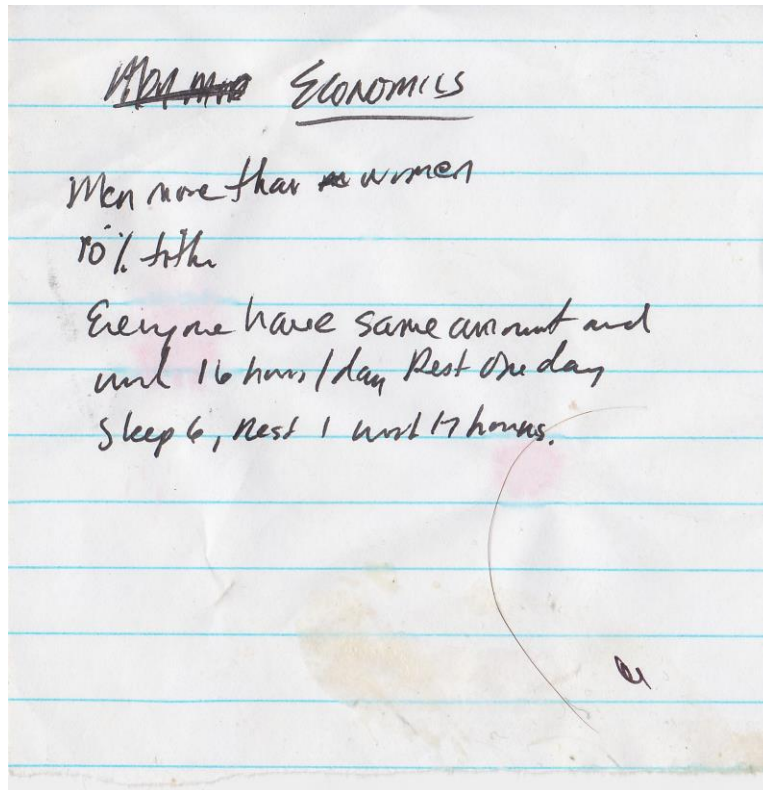 Economics
Men more than women
10% tithe
Everyone have same amount and
work 16 hours/day Rest One day
Sleep 6, Rest 1 work 17 hours.